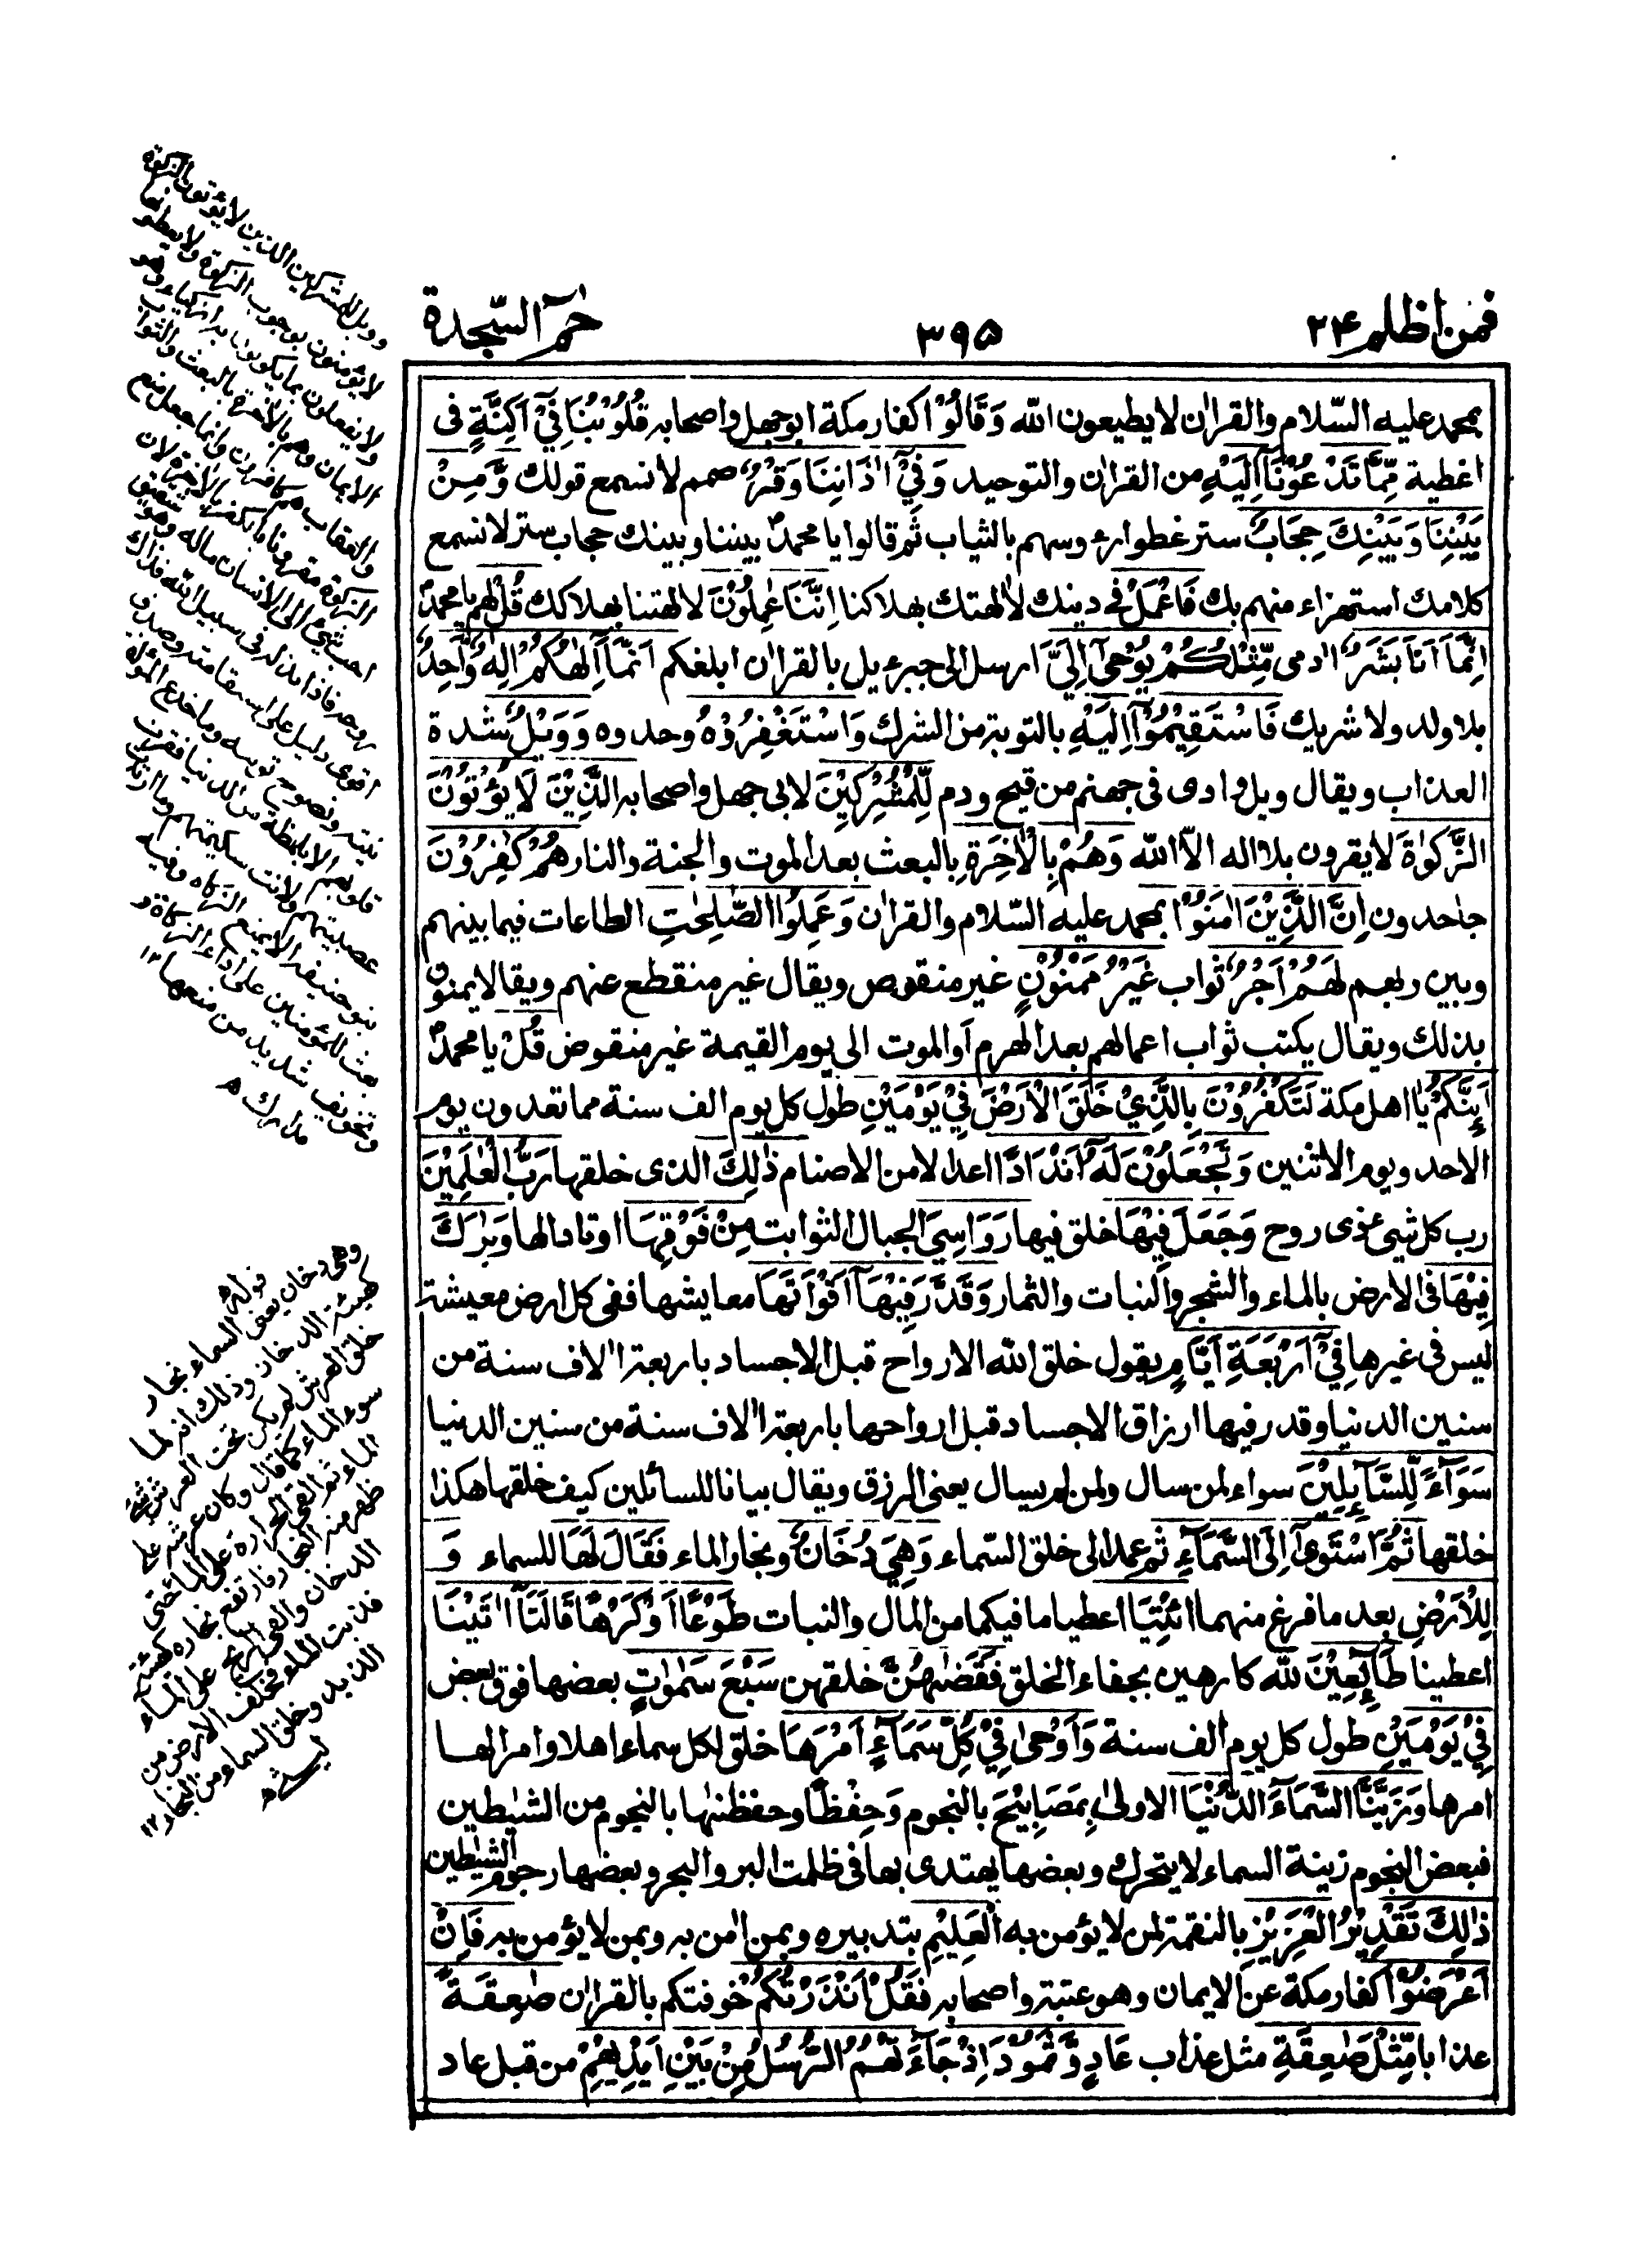 فمن اظلم ٢٤
٣٩٥
حٰمٓ السّجدة
بمحمد عليه السّلام والقراٰن لا يطيعون الله وَقَالُوْا كفار مكة ابوجهل واصحابه قُلُوْبُنَا فِيْٓ اَكِنَّةٍ فى
اغطية مِّمَّا تَدْعُوْنَآ اِلَيْهِ من القراٰن والتوحيد وَفِيْٓ اٰذَانِنَا وَقْرٌ صمم لا نسمع قولك وَّمِنْ
بَيْنِنَا وَبَيْنِكَ حِجَابٌ ستر غطوا رءوسهم بالثياب ثم قالوا يا محمدؐ بيننا وبينك حجاب ستر لا نسمع
كلامك استهزاء منهم بك فَاعْمَلْ فى دينك لاٰلهتك بهلاكنا اِنَّنَا عٰمِلُوْنَ لاٰلهتنا بهلاكك قُلْ لهم يا محمدؐ
اِنَّمَآ اَنَا بَشَرٌ اٰدمى مِّثْلُكُمْ يُوْحٰٓى اِلَيَّ ارسل الى جبرءيل بالقراٰن ابلغكم اَنَّمَآ اِلٰهُكُمْ اِلٰهٌ وَّاحِدٌ
بلا ولد ولا شريك فَاسْتَقِيْمُوْٓا اِلَيْهِ بالتوبة من الشرك وَاسْتَغْفِرُوْهُ وحدوه وَوَيْلٌ شدة
العذاب ويقال ويل وادى فى جهنم من قيح ودم لِّلْمُشْرِكِيْنَ لابى جهل واصحابه الَّذِيْنَ لَا يُؤْتُوْنَ
الزَّكٰوةَ لا يقرون بلا اله الّا الله وَهُمْ بِالْاٰخِرَةِ بالبعث بعد الموت والجنة والنار هُمْ كٰفِرُوْنَ
جاحدون اِنَّ الَّذِيْنَ اٰمَنُوْا بمحمد عليه السّلام والقراٰن وَعَمِلُوا الصّٰلِحٰتِ الطاعات فيما بينهم
وبين ربهم لَهُمْ اَجْرٌ ثواب غَيْرُ مَمْنُوْنٍ غير منقوص ويقال غير منقطع عنهم ويقال لا يمنون
بذلك ويقال يكتب ثواب اعمالهم بعد الهرم او الموت الى يوم القيمة غير منقوض قُلْ يا محمدؐ
اَئِنَّكُمْ يا اهل مكة لَتَكْفُرُوْنَ بِالَّذِيْ خَلَقَ الْاَرْضَ فِيْ يَوْمَيْنِ طول كل يوم الف سنة مما تعدون يوم
الاحد ويوم الاثنين وَتَجْعَلُوْنَ لَهٗٓ اَنْدَادًا اعدالا من الاصنام ذٰلِكَ الذى خلقها رَبُّ الْعٰلَمِيْنَ
رب كل شئ ذى روح وَجَعَلَ فِيْهَا خلق فيها رَوَاسِيَ الجبال الثوابت مِنْ فَوْقِهَا اوتادا لها وَبٰرَكَ
فِيْهَا فى الارض بالماء والشجر والنبات والثمار وَقَدَّرَ فِيْهَآ اَقْوَاتَهَا معايشها ففى كل ارض معيشة
ليس فى غيرها فِيْٓ اَرْبَعَةِ اَيَّامٍ يقول خلق الله الارواح قبل الاجساد باربعة اٰلاف سنة من
سنين الدنيا وقدر فيها ارزاق الاجساد قبل ارواحها باربعة اٰلاف سنة من سنين الدنيا
سَوَآءً لِّلسَّآئِلِيْنَ سواء لمن سال ولمن لم يسال يعنى الرزق ويقال بيانا للسائلين كيف خلقها هكذا
خلقها ثُمَّ اسْتَوٰٓى اِلَى السَّمَآءِ ثم عمد الى خلق السّماء وَهِيَ دُخَانٌ وبخار الماء فَقَالَ لَهَا للسماء وَ
لِلْاَرْضِ بعد ما فرغ منهما ائْتِيَا اعطيا ما فيكما من المال والنبات طَوْعًا اَوْ كَرْهًا قَالَتَآ اَتَيْنَا
اعطينا طَآئِعِيْنَ لله كارهين بجفاء الخلق فَقَضٰهُنَّ خلقهن سَبْعَ سَمٰوٰتٍ بعضها فوق بعض
فِيْ يَوْمَيْنِ طول كل يوم الف سنة وَاَوْحٰى فِيْ كُلِّ سَمَآءٍ اَمْرَهَا خلق لكل سماء اهلا وامر لها
امرها وَزَيَّنَّا السَّمَآءَ الدُّنْيَا الاولى بِمَصَابِيْحَ بالنجوم وَحِفْظًا وحفظنٰها بالنجوم من الشيٰطين
فبعض النجوم زينة السماء لا يتحرك وبعضها يهتدى بها فى ظلمت البر والبحر وبعضها رجوم الشيٰطين
ذٰلِكَ تَقْدِيْرُ الْعَزِيْزِ بالنقمة لمن لا يؤمن به الْعَلِيْمِ بتدبيره وبمن اٰمن به وبمن لا يؤمن به فَاِنْ
اَعْرَضُوْا كفار مكة عن الايمان وهو عتبة واصحابه فَقُلْ اَنْذَرْتُكُمْ خوفتكم بالقراٰن صٰعِقَةً
عذابا مِّثْلَ صٰعِقَةِ مثل عذاب عَادٍ وَّثَمُوْدَ اِذْ جَآءَتْهُمُ الرُّسُلُ مِنْ بَيْنِ اَيْدِيْهِمْ من قبل عاد
وويل للمشركين الذين لا يؤتون الزكوة
لا يؤمنون بوجوب الزكوة ولا يعطونها
ولا يفعلون ما يكونون به ازكياء وهو
الايمان وهم بالاٰخرة بالبعث والثواب
والعقاب هم كافرون وانما جعل منع
الزكوة مقرونا بالكفر بالاٰخرة لان
احب شئ الى الانسان ماله وهو شقيق
روحه فاذا بذله فى سبيل الله فذلك
اقوى دليل على استقامته وصدق
نيته ونصوح توبته وما خدع المؤلفة
قلوبهم الا بلمظة من الدنيا فقرت
عصبيتهم ولانت شكيمتهم وما ارتدت
بنو حنيفة الا بمنع الزكاة وفيه
بعث للمؤمنين على اداء الزكاة و
تخويف شديد من منعها ١٢
مدارك
قوله
وهى دخان يعنى السماء بخار
كهيئة الدخان وذلك انه لما
خلق العرش لم يكن تحت العرش شئ
سوى الماء كما قال وكان عرشه على
الماء ثم القى الحرارة على الماء حتى
ظهر منه البخار فارتفع بخاره كهيئة
الدخان والقى الريح على الماء
فزبد الماء فخلق الارض من
الزبد وخلق السماء من البخار ١٢